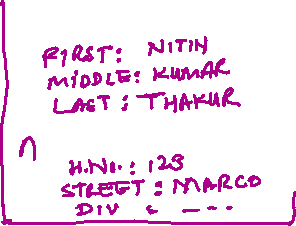 FIRST: NITIN
MIDDLE: KUMAR
LAST: THAKUR
H.No.: 123
STREET: MARCO
DIV : ---